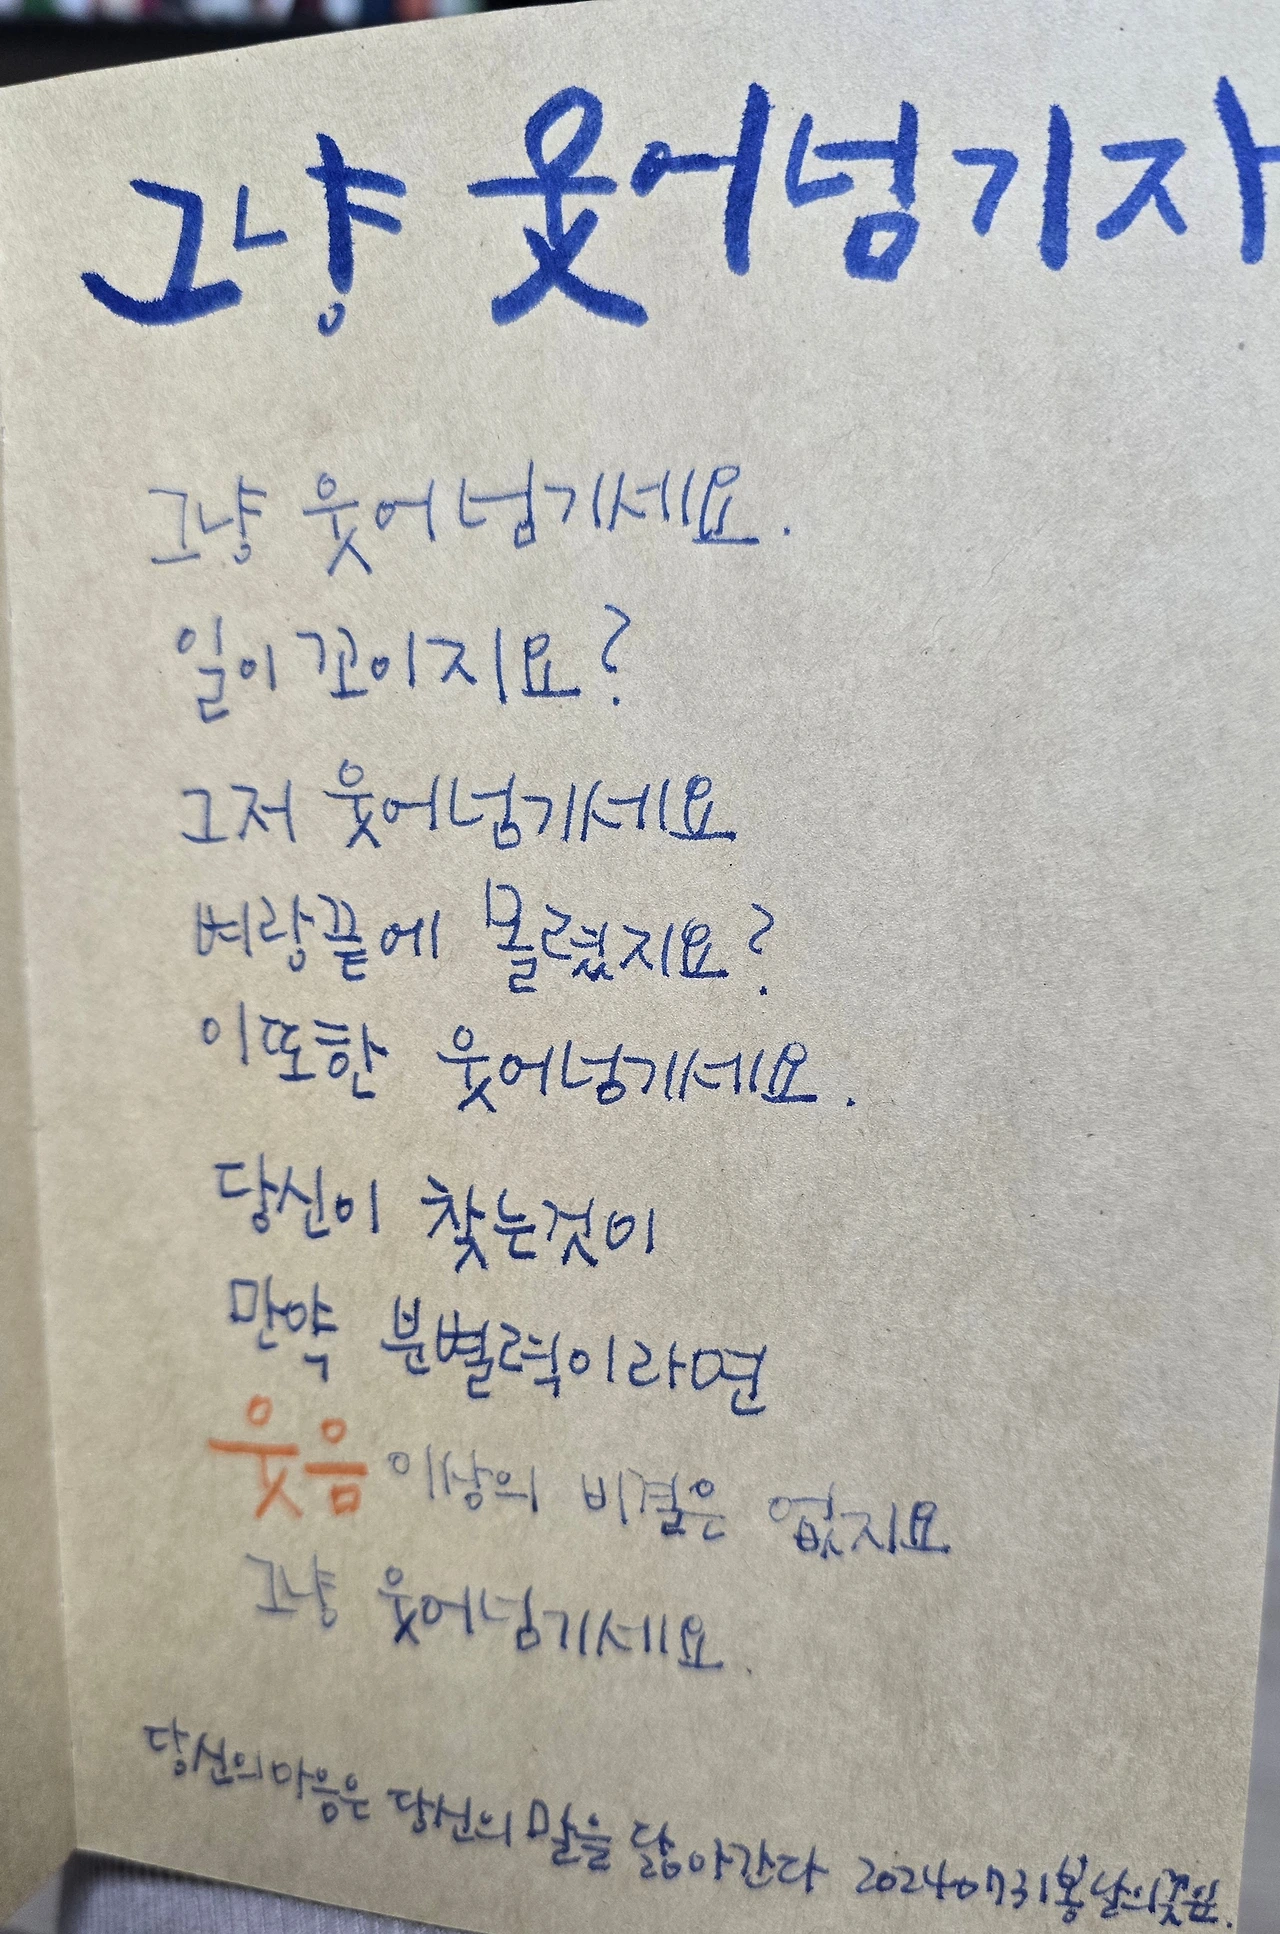 그냥 웃어넘기자
그냥 웃어 넘기세요.
일이 꼬이지요?
그저 웃어넘기세요
벼랑끝에 몰렸지요?
이또한 웃어넘기세요.
당신이 찾는것이
만약 분별력이라면
웃음 이상의 비결은 없지요
그냥 웃어넘기세요.
당신의마음은 당신의 말을 닮아간다 20240731봄날의꽃잎.